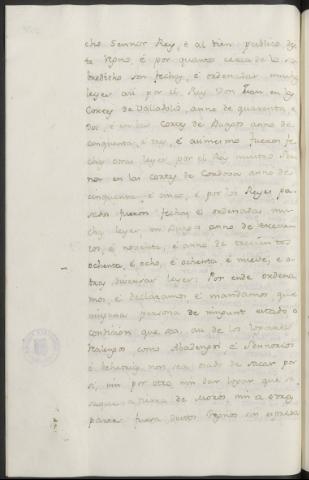 cho Sennor Rey, é al bien publico des
te Regno, é por quanto cerca de lo so
bredicho son fechas, é ordenadas muchas
leyes asi por el Rey Don Juan en las
Cortes de Valladolid, anno de quarenta, é
dos, é en las Cortes de Burgos anno de
cinquenta, é tres, é asimesmo fueron fe
chas otras leyes, por el Rey nuestro Sen
nor en las Cortes de Cordova anno de
cinquenta, é cinco, é por los Reyes pa
sados fueron fechas, é ordenadas mu
chas leyes, en Burgos anno de trecien
tos, é noventa, é anno de trecientos
ochenta, é ocho, é ochenta é nueve, é o
tras diversas leyes: Por ende ordena
mos, é declaramos, é mandamos que
ninguna persona de ningunt estado o
condicion que sea, asi de los logares
Realengos como Abadengos, é Sennorios
é behetrias non sea osado de sacar por
si, nin por otro nin dar logar que se
saque a tierra de Moros, nin a otras
partes fuera destos Regnos sin expresa